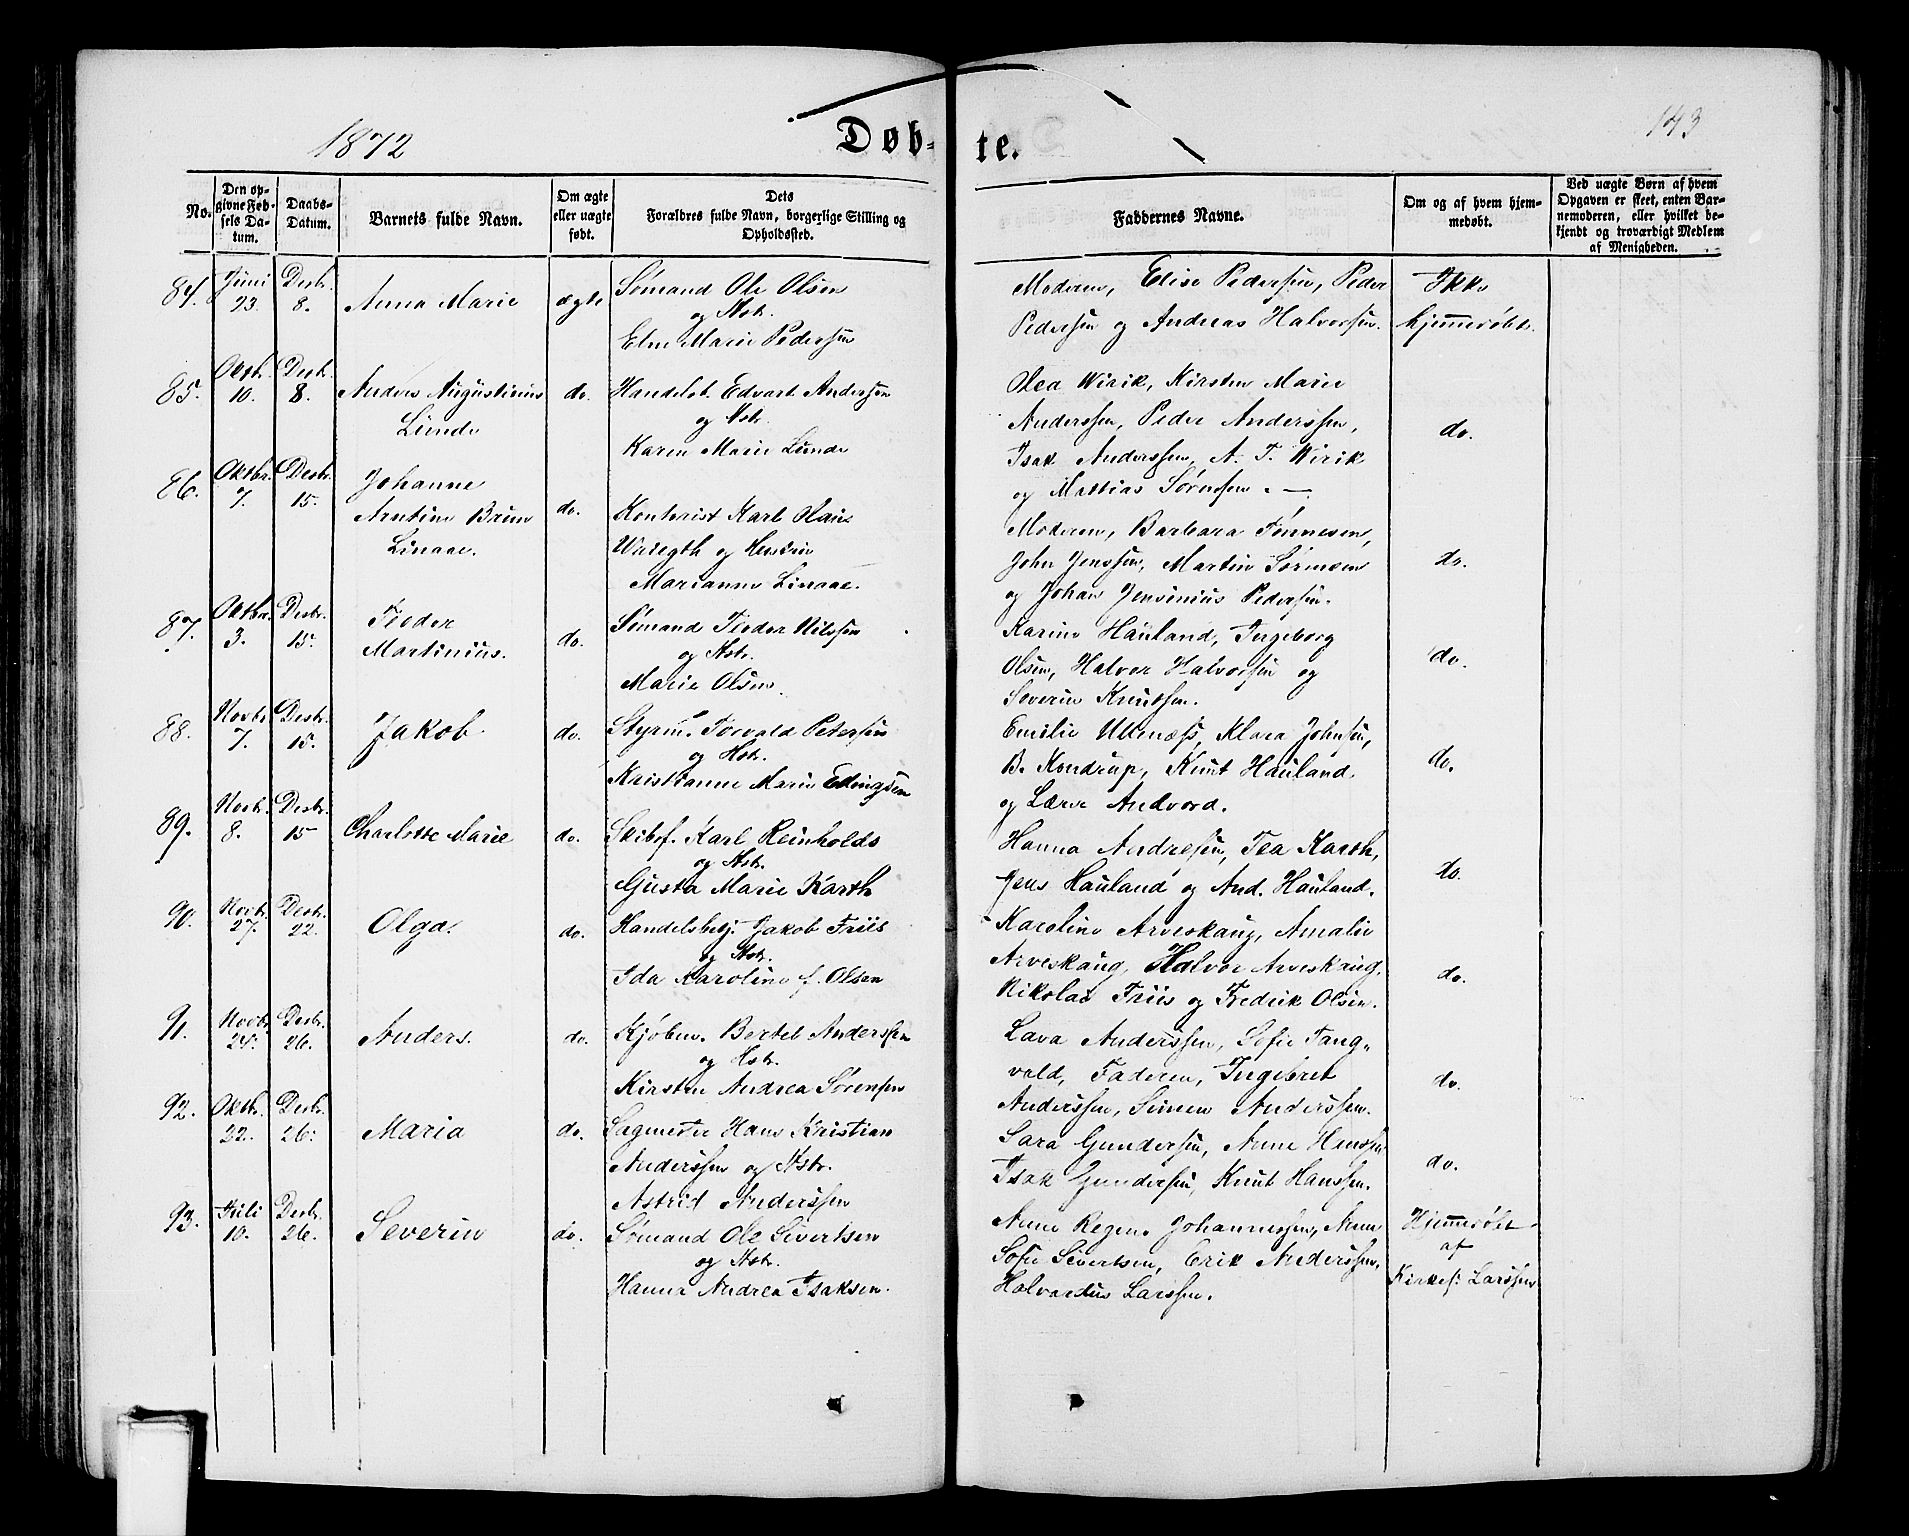 1872
Døb-
te.
143
No.
Den op-
givne Føb-
sels Da-
tum.
Daabs-
Datum.
Barnets fulde Navn.
Om ægte
eller uægte
født.
Dets
Forældres fulde Navn, borgerlige Stilling og
Opholdssted.
Faddernes Navne.
Om og af hvem hjem-
medøbt.
Ved uægte Børn af hvem
Opgaven er skeet, enten Bar-
nemoderen, eller hvilket be-
kjendt og troværdigt Medlem
af Menigheden.
84. Juni 23. Desbr. 8. Anna Marie ægte Sømand Ole Olsen
og Hstr.
Elen Marie Pedersen
Moderen, Elise Pedersen, Peder
Pedersen og Andreas Halvorsen.
Ikke
hjemmedøbt.
85. Oktbr. 10. Desbr. 8. Anders Augustinius
Lunde
do. Handelsb. Edvart Andersen
og Hstr.
Karen Marie Lunde
Olea Wirik, Kirsten Marie
Anderssen, Peder Anderssen,
Isak Anderssen, A. T. Wirik
og Mattias Sørensen. —
do.
86. Oktbr. 7. Desbr. 15. Johanne
Arntine Brun
Linaae.
do. Kontorist Karl Olaus
og
Marianne Linaae.
Moderen, Barbara Tønnesen,
John Jenssen, Martin Sørensen
og Johan Jensinius Pedersen.
do.
87. Oktbr. 3. Desbr. 15. Teodor
Martinius.
do. Sømand Teodor Nilssen
og Hstr.
Marie Olsen.
Karine Hauland, Ingeborg
Olsen, Halvor Halvorsen og
Severin Knutsen.
do.
88. Novbr. 7. Desbr. 15. Jakob do. Styrm. Torvald Petersen
og Hstr.
Kristianne Marie
Emilie Ullenæss, Klara Johnsen,
B. Kondrup, Knut Hauland
og Lærer Andvord.
do.
89. Novbr. 8. Desbr. 15 Charlotte Marie do. Skibsf. Karl Reinholds
og Hstr.
Gjusta Marie Karth
Hanna Andresen, Tea Karth,
Jens Hauland og And. Hauland.
do.
90. Novbr. 27. Desbr. 22. Olga. do. Handelsbetj. Jakob Friis
og Hstr.
Ida Karoline f. Olsen
Karoline Arveskaug, Amalie
Arveskaug, Halvor Arveskaug,
Nikolai Friis og Fredrik Olsen.
do.
91. Novbr. 24. Desbr. 26. Anders. do. Kjøbm. Bertel Anderssen
og Hstr.
Kirsten Andrea Sørensen
Lava Anderssen, Sofie Tang-
vald, Faderen, Ingebret
Anderssen, Simen Anderssen.
do.
92. Oktbr. 22. Desbr. 26. Maria do. Sagmester Hans Kristian
Anderssen og Hstr.
Astrid Anderssen
Sara Gundersen, Anne Hanssen
Isak Gundersen, Knut Hanssen.
do.
93. Juli 10. Desbr. 26. Severin do. Sømand Ole Sivertsen
og Hstr.
Hanna Andrea Isaksen.
Anne Regine Johannessen, Anne
Sofie Sivertsen, Erik Anderssen,
Halvardus Larssen.
Hjemmedøbt
af
Kirkes. Larssen